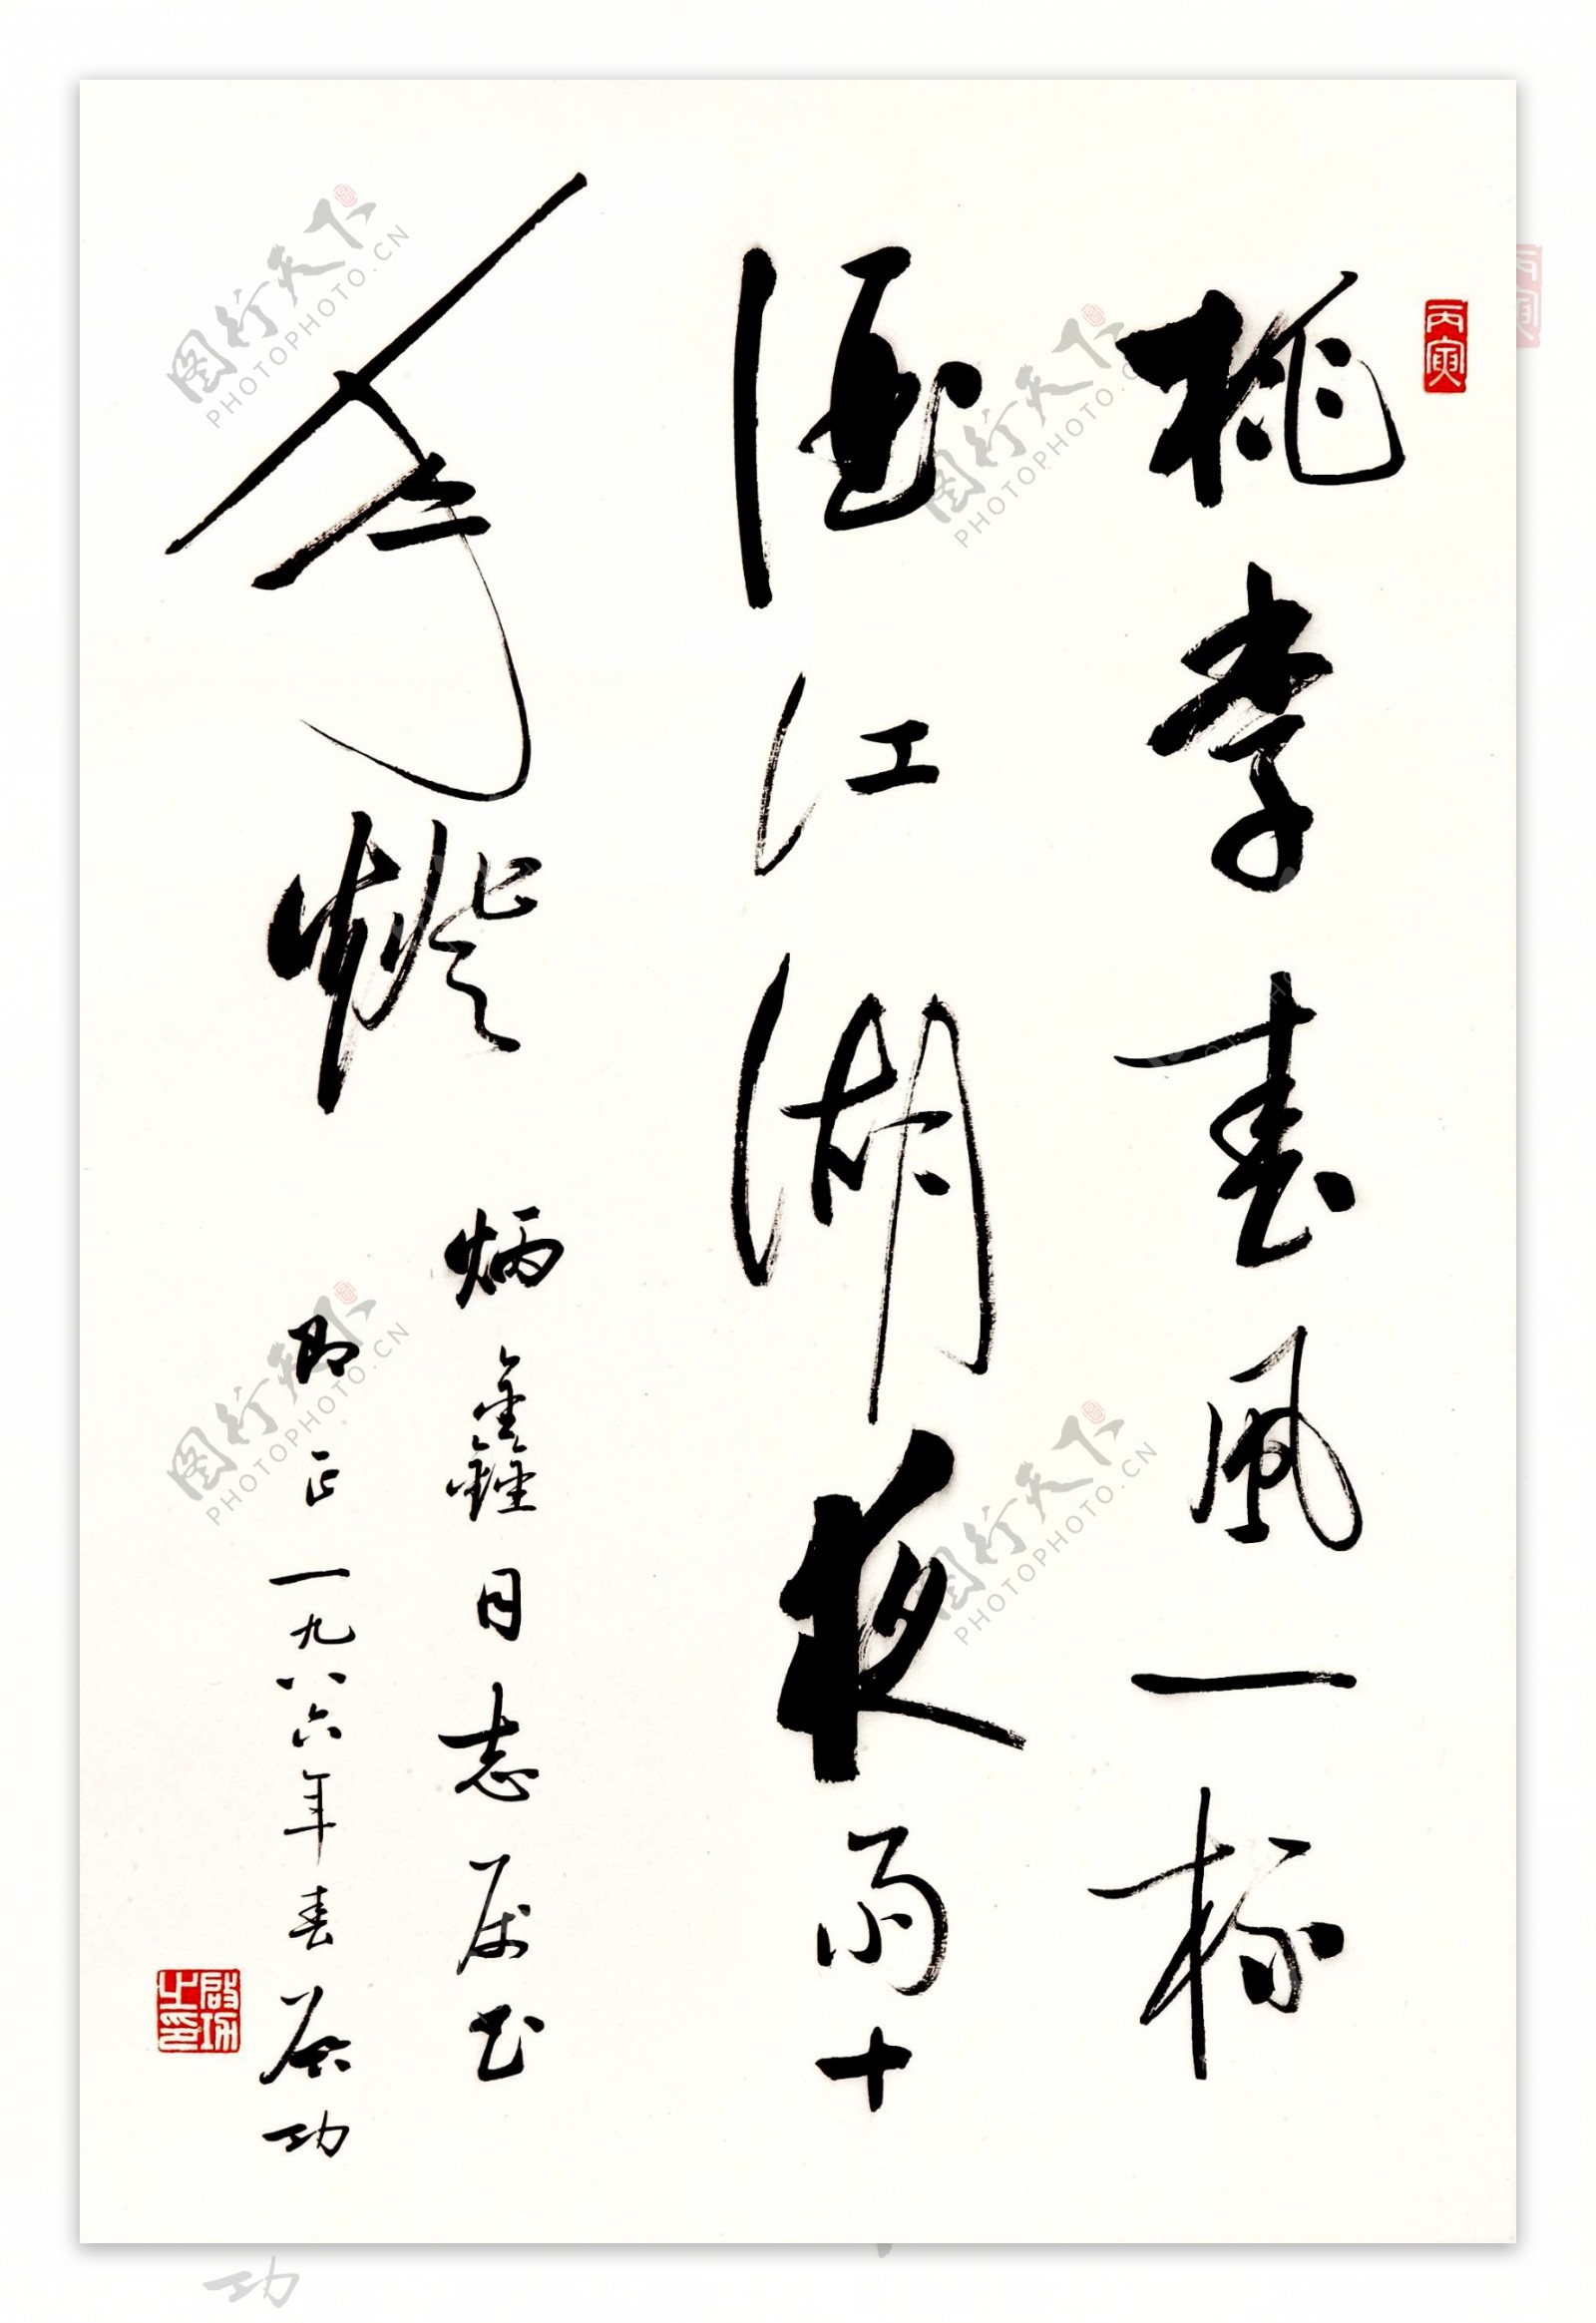 丙寅
桃李春风一杯
酒江湖夜雨十
年灯
炳鑫同志属书
即正一九八六年春启功
启功之印
图行天下
PHOTOPHOTO.CN
图行天下
PHOTOPHOTO.CN
图行天下
PHOTOPHOTO.CN
图行天下
PHOTOPHOTO.CN